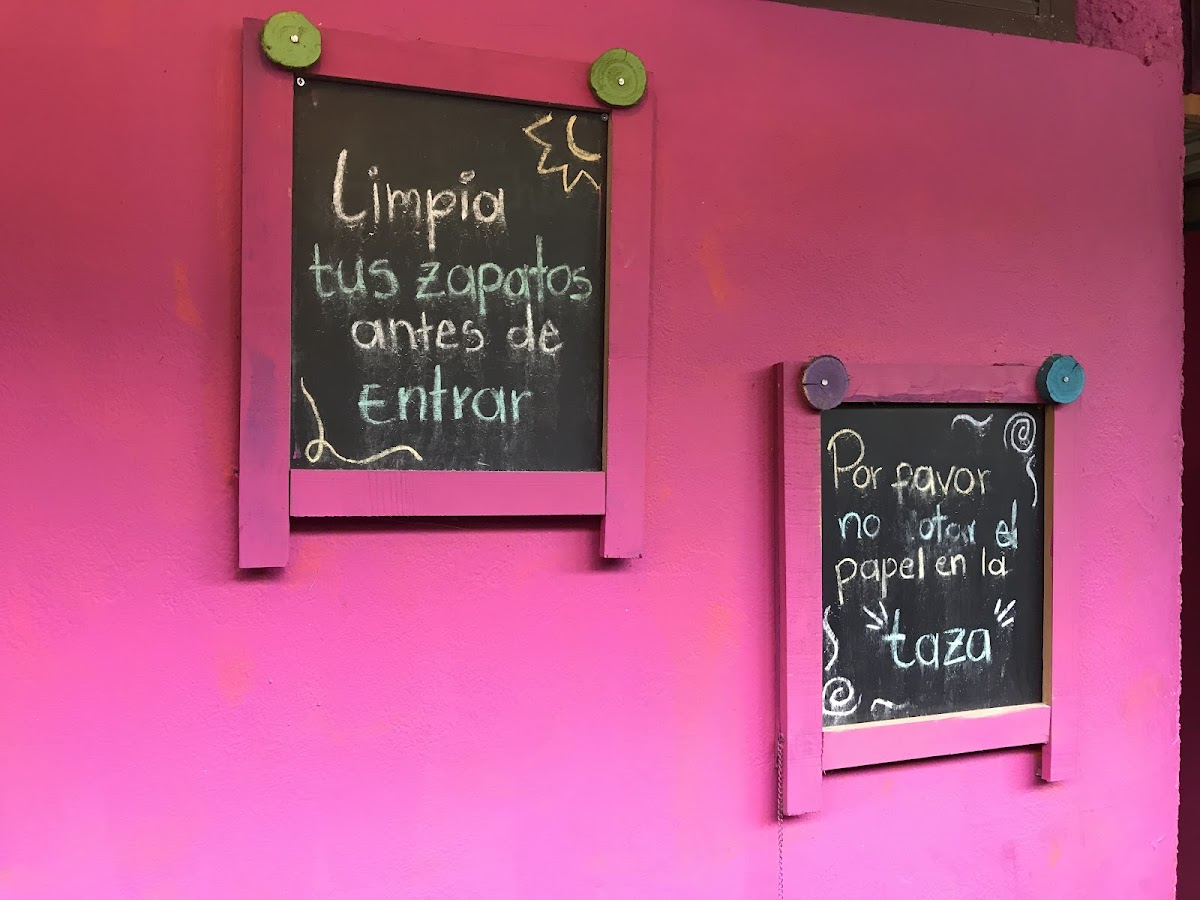 Limpia
tus zapatos
antes de
Entrar
Por favor
no el
papel en la
"taza"